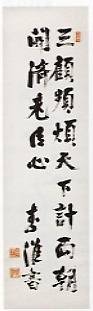 三顧頻煩天下計兩朝
開濟老臣心 李漢書